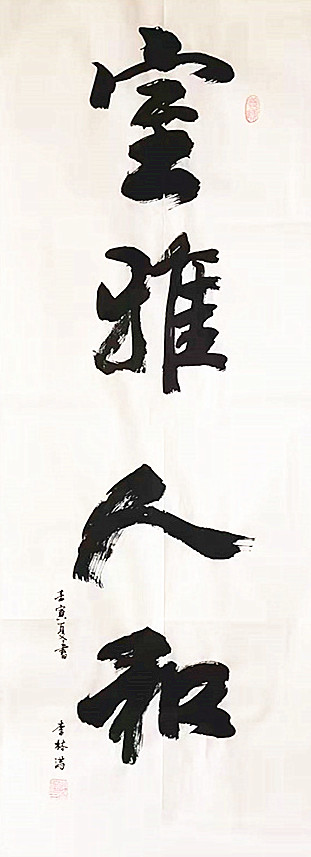 室雅人和
壬寅夏书
李林满